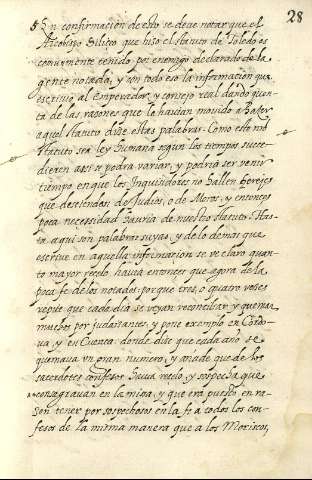 28
5 En confirmacion de esto se deve notar que el
Arcobispo Siliceo que hizo el statuto de Toledo es
comunmente tenido por enemigo declarado de la
gente notada, y con todo eso la informacion que
escrivio al Emperador, y consejo real dando quen-
ta de las rasones que le havian movido a haser
aquel statuto dise estas palabras. Como este nro
statuto sea ley humana segun los tiempos succe-
dieren assi se podra variar, y podria ser venir
tiempo en que los Inquisidores no hallen herejes
que desciendan de Judios, o de Moros, y entonces
poca necessidad havria de nuestro statuto. Has-
ta aqui son palabras suyas, y de lo demas que
escrive en aquella informacion se ve claro quan-
to mayor recelo havia entonces que agora de la
poca fe de los notados. porque tres, o quatro veses
repite que cada dia se veyan reconciliar, y quemar
muchos por judaisantes, y pone exemplo en Cordo-
va, y en Cuenca. donde dise que cada año se
quemava un gran numero, y añade que de los
sacerdotes confesos havia recelo, y sospecha que
no consagravan en la misa, y que era puesto en ra-
son tener por sospechosos en la fe a todos los con-
fesos de la misma manera que a los Moriscos,